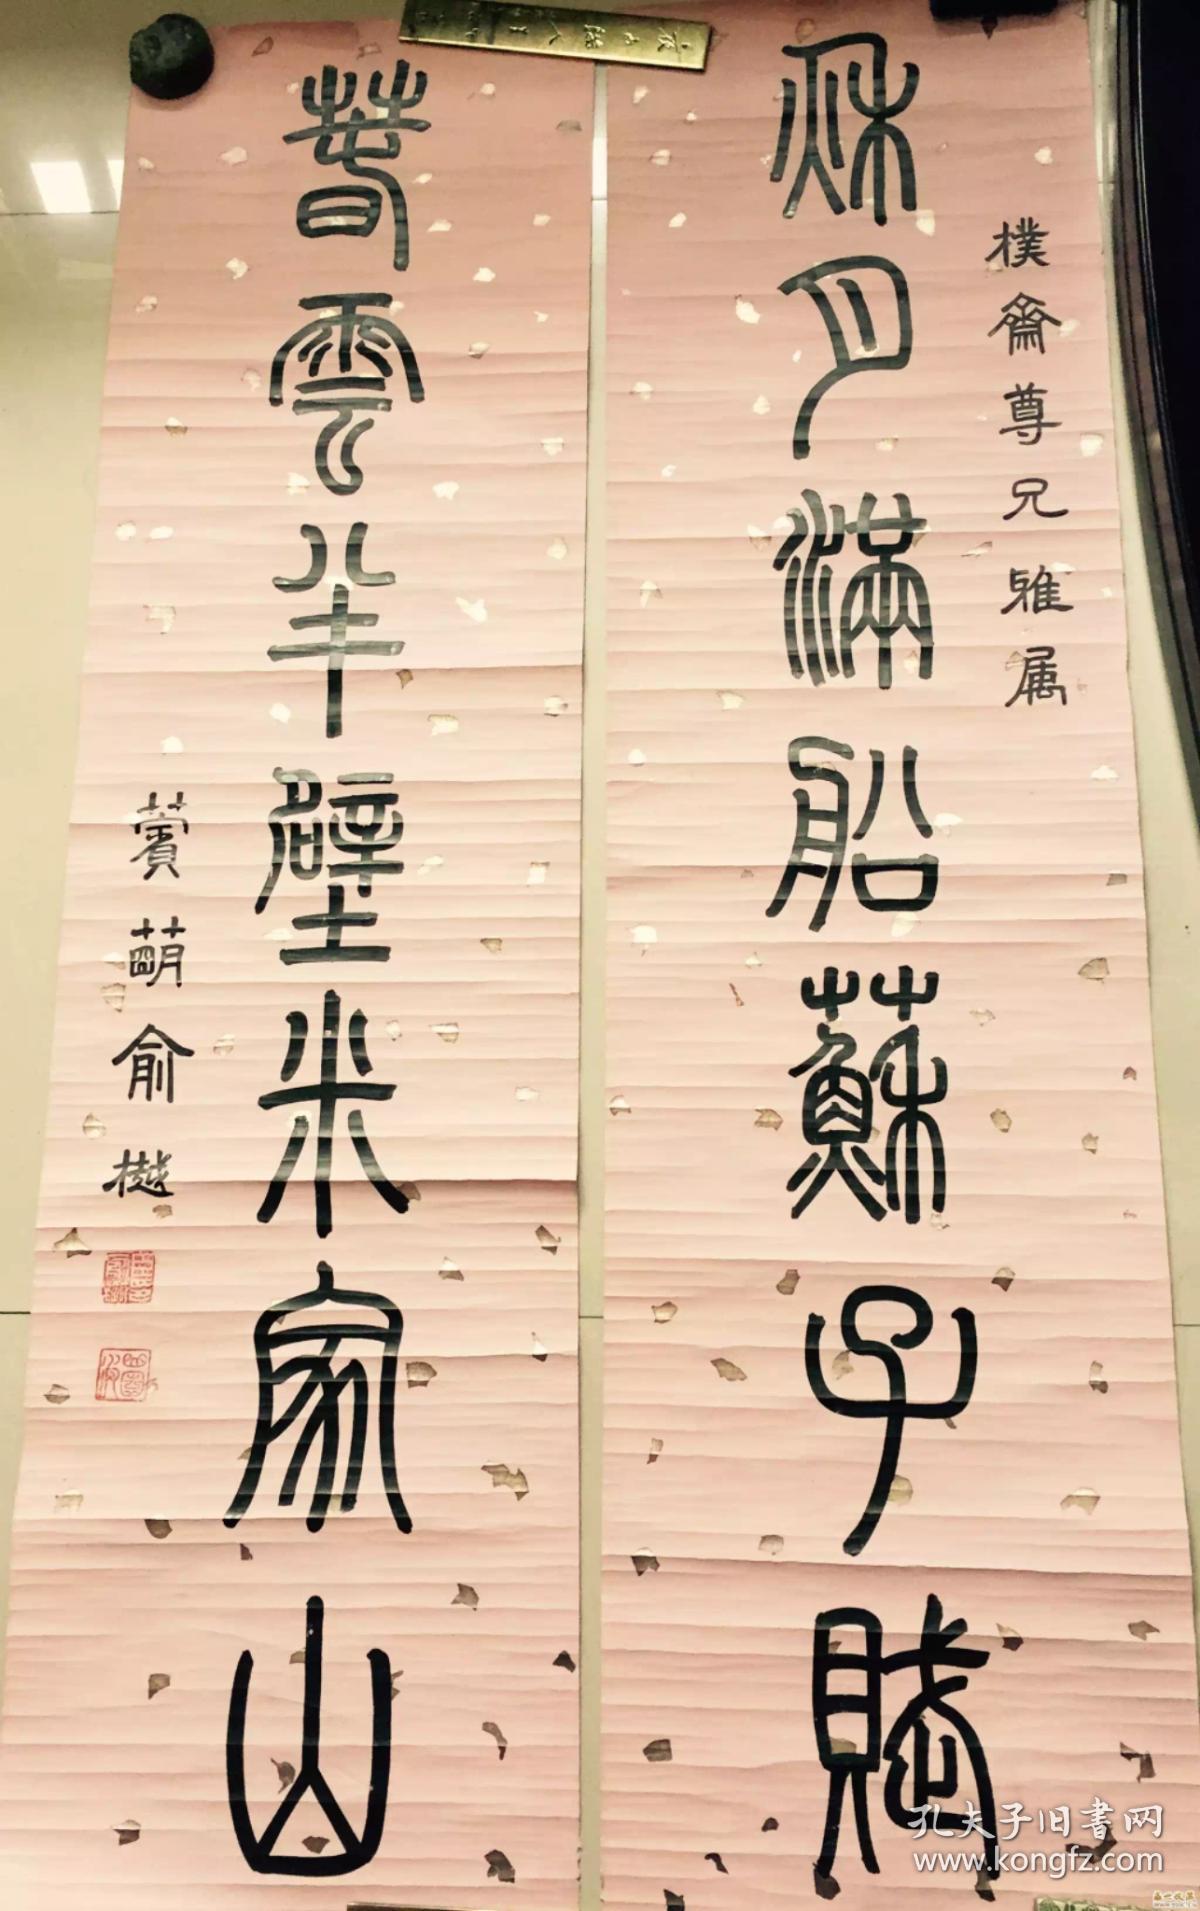 樸齋尊兄雅属
秌月滿船蘇子賦
萅雲半壁米家山
薲萌俞樾
孔夫子旧書网
www.kongfz.com